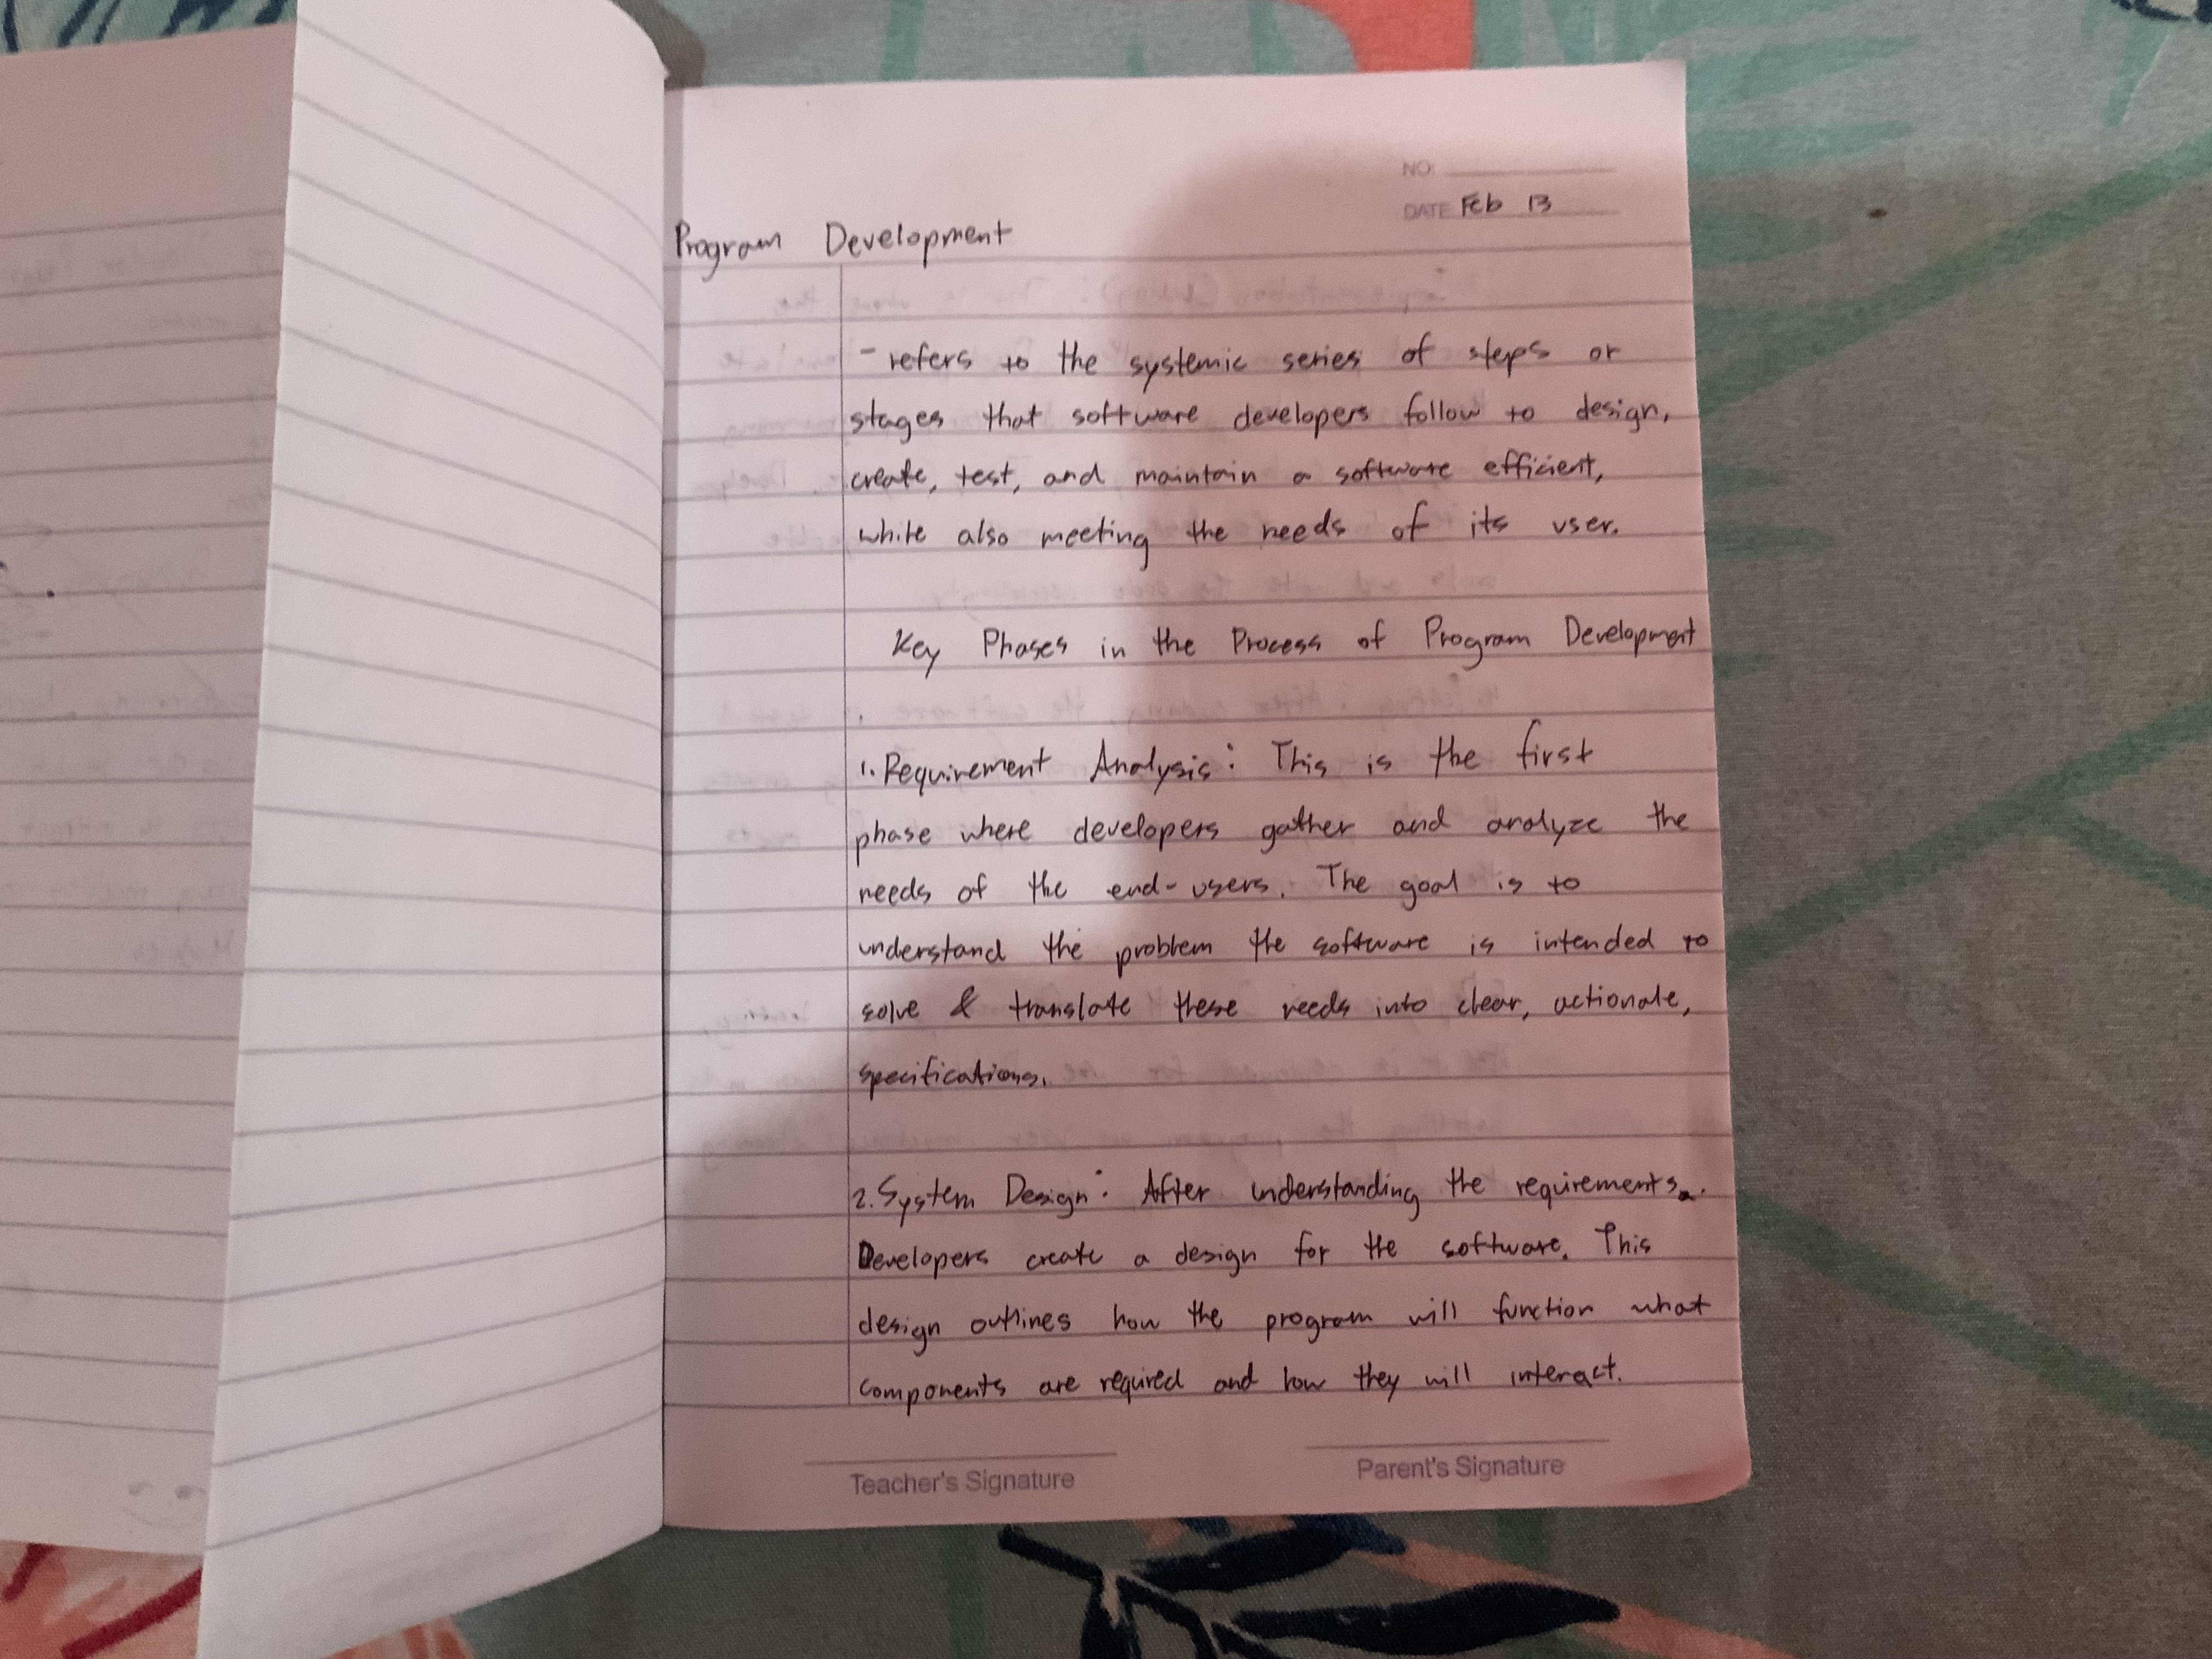 NO:
DATE Feb 13
Program Development
- refers to the systemic series of steps or
stages that software developers follow to design,
create, test, and maintain a software efficient,
while also meeting the needs of its user.
Key Phases in the Process of Program Development
1. Requirement Analysis: This is the first
phase where developers gather and analyze the
needs of the end-users. The goal is to
understand the problem the software is intended to
solve & translate these needs into clear, actionale,
specifications.
2. System Design: After understanding the requirements.
Developers create a design for the software. This
design outlines how the program will function what
components are required and how they will interact.
Teacher's Signature
Parent's Signature